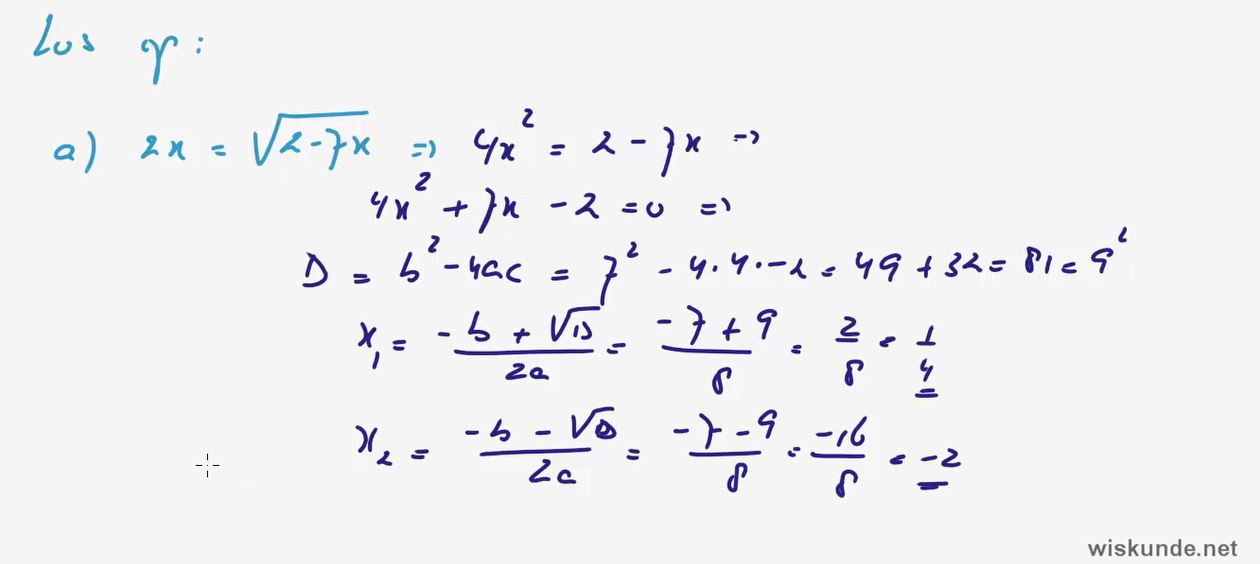 Los op:
a) 2x = √(2-7x) => 4x² = 2 - 7x =>
4x² + 7x - 2 = 0 =>
D = b² - 4ac = 7² - 4·4·-2 = 49 + 32 = 81 = 9²
x₁ = (-b + √D)/(2a) = (-7+9)/8 = 2/8 = 1/4
x₂ = (-b - √D)/(2a) = (-7-9)/8 = -16/8 = -2
wiskunde.net